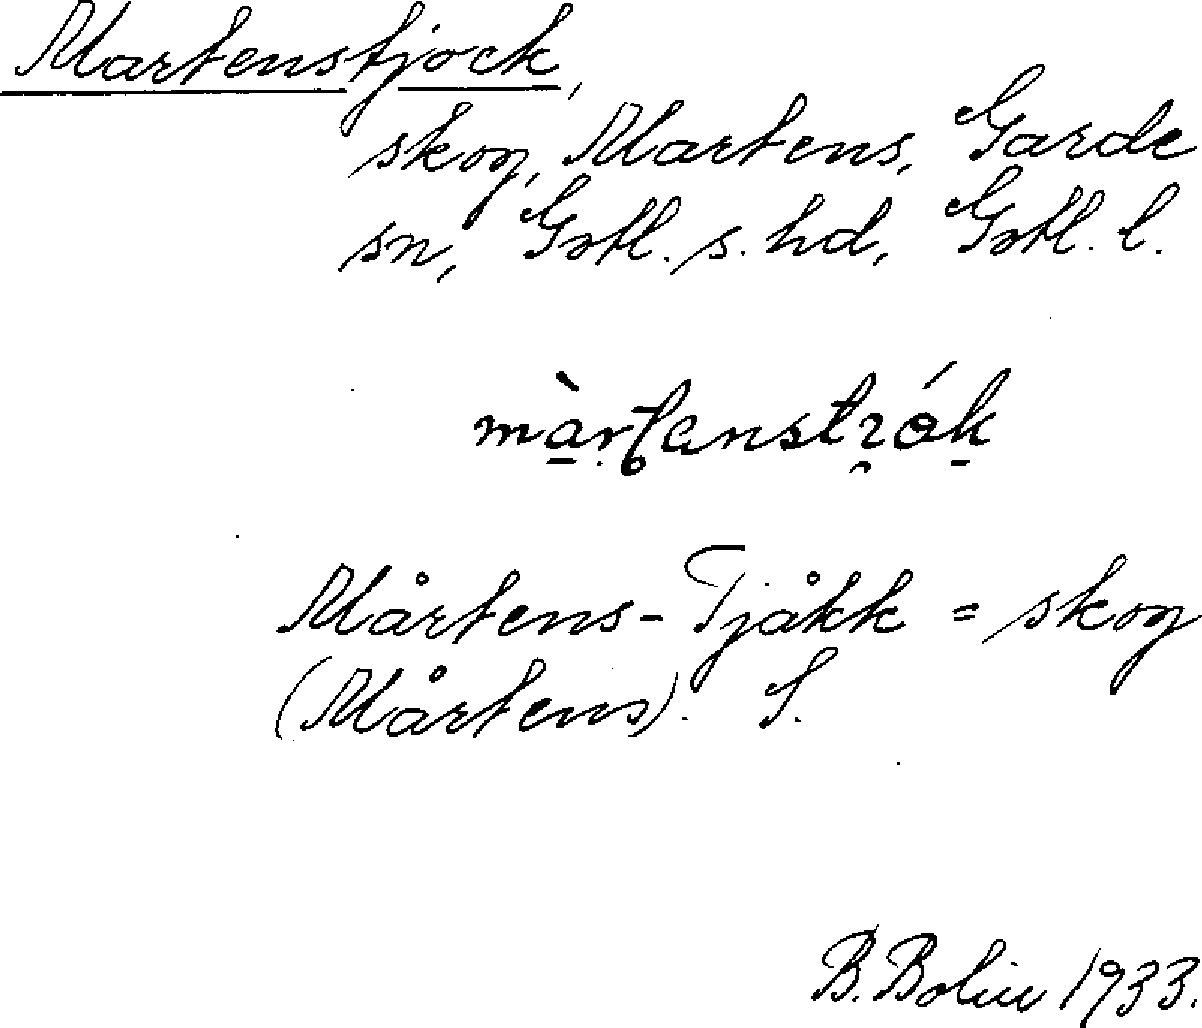 Martenstjock,
skog, Martens, Garde
sn, Gotl. s. hd, Gotl. l.
Mårtens-Tjåkk = skog
(Mårtens). S.
B. Bolin 1933.